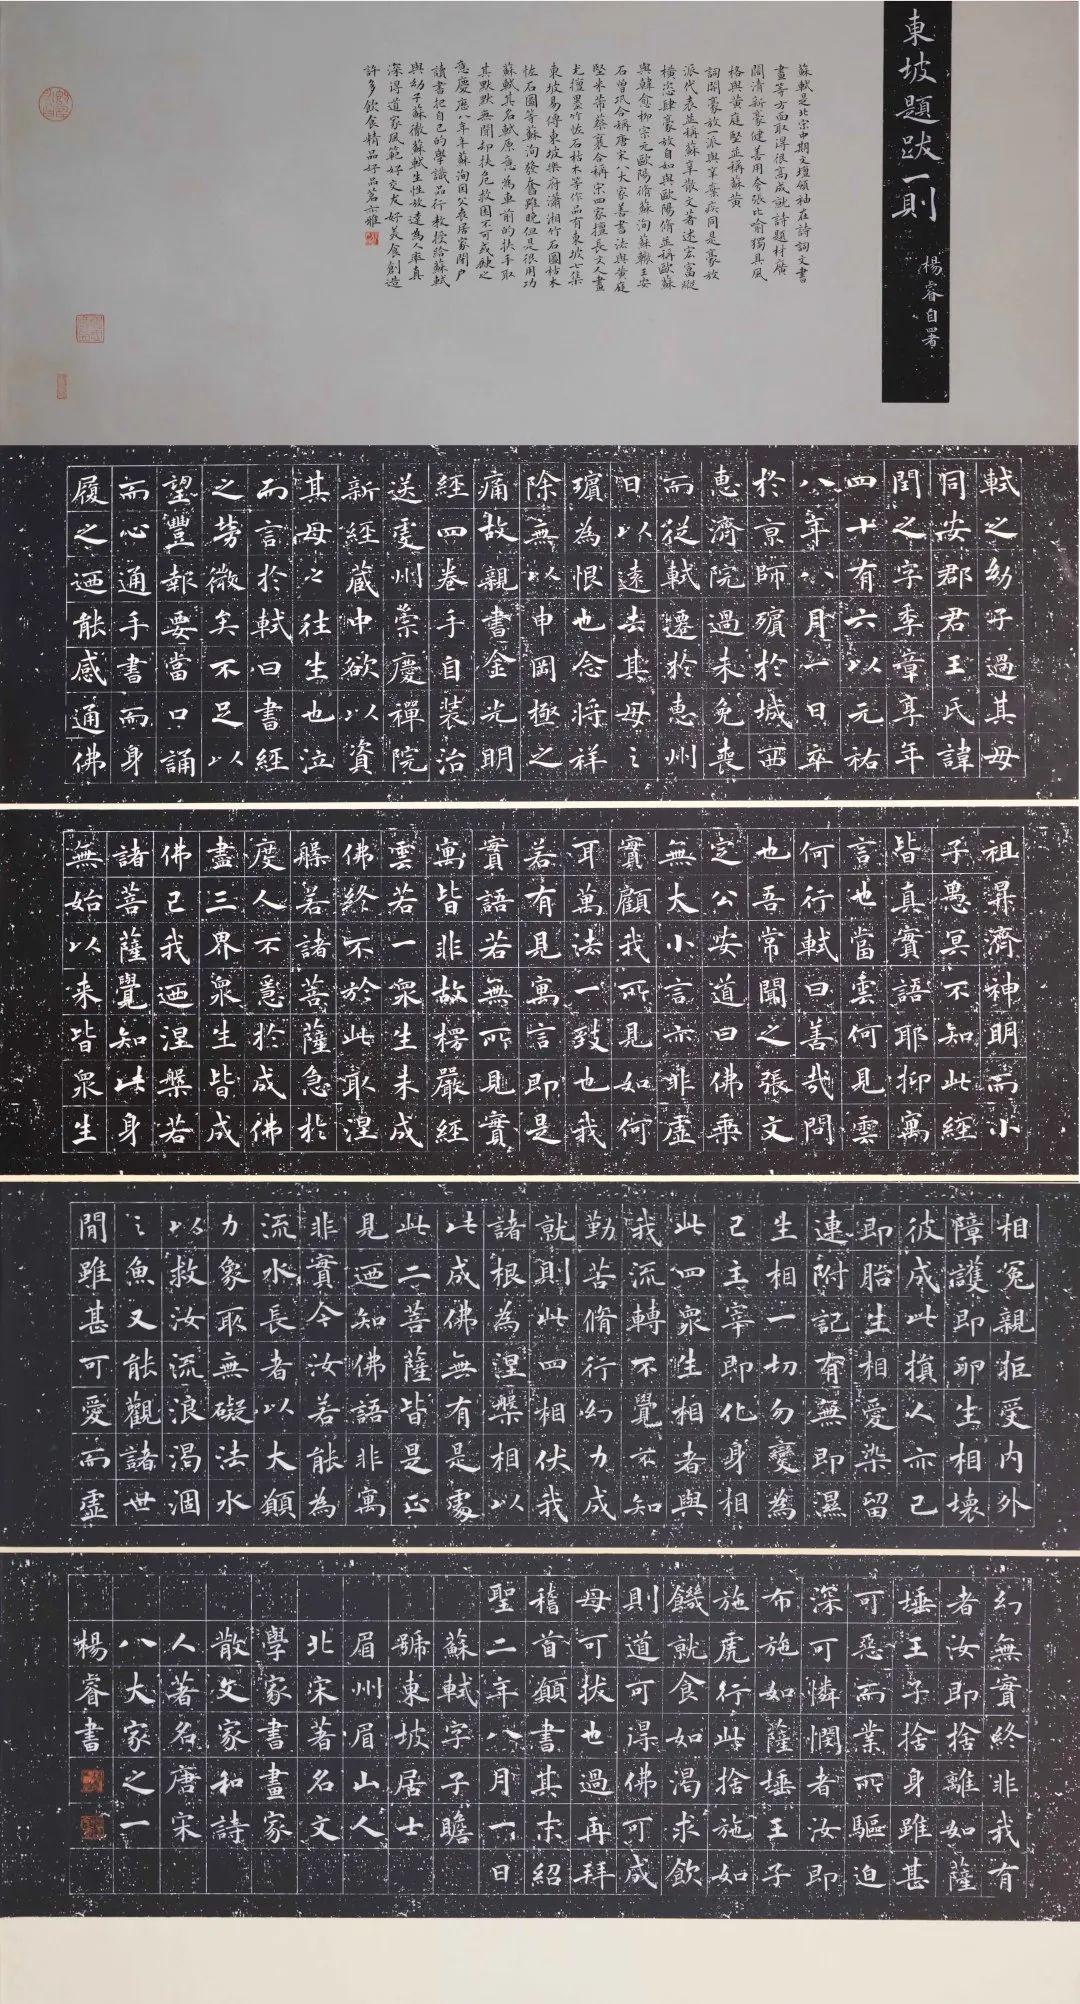 東坡題跋一則
楊睿自署
蘇軾是北宋中期文壇領袖在詩詞文書
畫等方面取得很高成就詩題材廣
闊清新豪健善用夸張比喻獨具風
格與黃庭堅並稱蘇黃
詞開豪放一派與辛棄疾同是豪放
派代表並稱蘇辛散文著述宏富縱
橫恣肆豪放自如與歐陽脩並稱歐蘇
與韓愈柳宗元歐陽脩蘇洵蘇轍王安
石曾鞏合稱唐宋八大家善書法與黃庭
堅米芾蔡襄合稱宋四家擅長文人畫
尤擅墨竹怪石枯木等作品有東坡七集
東坡易傳東坡樂府瀟湘竹石圖枯木
怪石圖等蘇洵發奮雖晚但是很用功
蘇軾其名軾原意為車前的扶手取
其默默無聞却扶危救困不可或缺之
意慶應八年蘇洵因父喪居家閉户
讀書把自己的學識品行教授給蘇軾
與幼子蘇徹蘇軾生性放達為人率真
深得道家風範好交友好美食創造
許多飲食精品好品茗亦雅
軾之幼子過其母
同安郡君王氏諱
閏之字季章享年
四十有六以元祐
八年八月一日卒
於京師殯於城西
惠濟院過未免喪
而從軾遷於惠州
日以遠去其母之
殯為恨也念將祥
除無以申罔極之
痛故親書金光明
經四卷手自裝治
送虔州崇慶禪院
新經藏中欲以資
其母之往生也泣
而言於軾曰書經
之勞微矣不足以
望豐報要當口誦
而心通手書而身
履之迺能感通佛
祖昇濟神明而小
子愚冥不知此經
皆真實語耶抑寓
言也當雲何見雲
何行軾曰善哉問
也吾常聞之張文
定公安道曰佛乘
無大小言亦非虛
實顧我所見如何
耳萬法一致也我
若有見寓言即是
實語若無所見實
寓皆非故楞嚴經
雲若一衆生未成
佛終不於此取涅
槃若諸菩薩急於
度人不意於成佛
盡三界衆生皆成
佛已我迺涅槃若
諸菩薩覺知此身
無始以来皆衆生
相冤親拒受內外
障護即卵生相壞
彼成此損人亦己
即胎生相愛染留
連附記有無即濕
生相一切勿變為
己主宰即化身相
此四衆生相者與
我流轉不覺不知
勤苦脩行幻力成
就則此四相伏我
諸根為涅槃相以
此成佛無有是處
此二菩薩皆是正
見迺知佛語非寓
非實今汝若能為
流水長者以大願
力象取無礙法水
以救汝流浪渴涸
之魚又能觀諸世
間雖甚可愛而虛
幻無實終非我有
者汝即捨離如薩
埵王子捨身雖甚
可惡而業所驅迫
深可憐憫者汝即
布施如薩埵王子
施虎行此捨施如
饑就食如渴求飲
則道可得佛可成
母可拔也過再拜
稽首願書其末紹
聖二年八月一日
蘇軾字子瞻
號東坡居士
眉州眉山人
北宋著名文
學家書畫家
散文家和詩
人著名唐宋
八大家之一
楊睿書